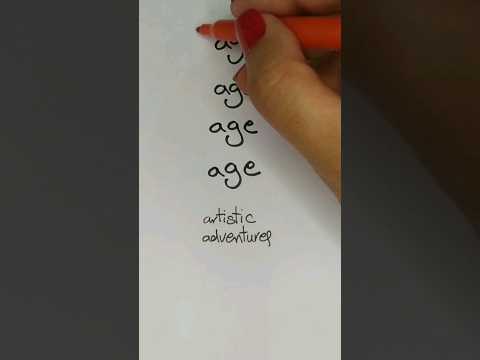 ag
age
age
age
artistic
adventures